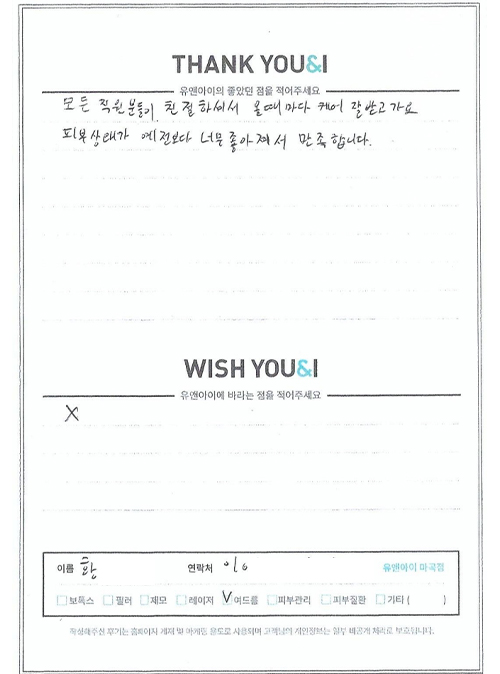 THANK YOU&I
유앤아이의 좋았던 점을 적어주세요
모든 직원분들이 친절하셔서 올때마다 케어 잘받고가요
피부상태가 예전보다 너무좋아져서 만족합니다.
WISH YOU&I
유앤아이에 바라는 점을 적어주세요
X
이름 환 연락처 010 유앤아이 마곡점
보톡스 필러 제모 레이저 V 여드름 피부관리 피부질환 기타 ( )
작성해주신 후기는 홈페이지 게재 및 마케팅 용도로 사용되며 고객님의 개인정보는 일부 비공개 처리로 보호됩니다.